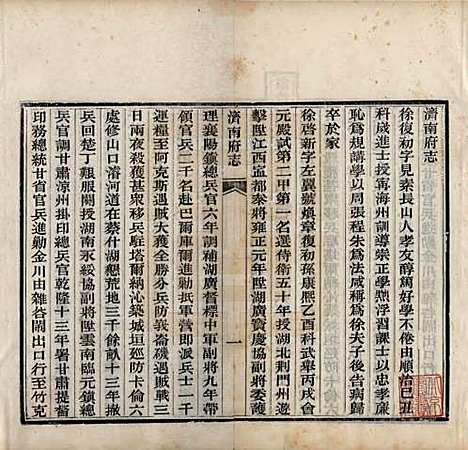 濟南府志
徐復初字見泰長山人孝友醇篤好學不倦由順治己丑
科歲進士授寗海州訓導崇正學黙浮習課士以忠孝廉
恥爲規講學以周張程朱爲法咸稱爲徐夫子後告病歸
卒於家
徐啓新字左翼號煥章復初孫康熙乙酉科武舉丙戌會
元殿試第二甲第一名選侍衛五十年授湖北荆門州遊
擊陞江西寗都泰將雍正元年陞湖廣寳慶協副將委護
濟南府志
一
理襄陽鎮總兵官六年調補湖廣督標中軍副將九年帶
領官兵二千名赴巴爾庫爾進勦抵軍營即派兵士一千
運糧至阿克斯遇賊大獲全勝分兵防峩崙磯遇賊戰三
日兩夜殺獲甚眾移兵駐塔爾納沁築城垣廵防卡倫六
處修山口濬河道在蔡什湖懇荒地三千餘畝十三年撤
兵回楚丁艱服闋授湖南永綏協副將陞雲南臨元鎮總
兵官調甘肅涼州掛印總兵官乾隆十三年署甘肅提督
印務總統甘省官兵進勦金川由雜谷鬧出口行至竹克